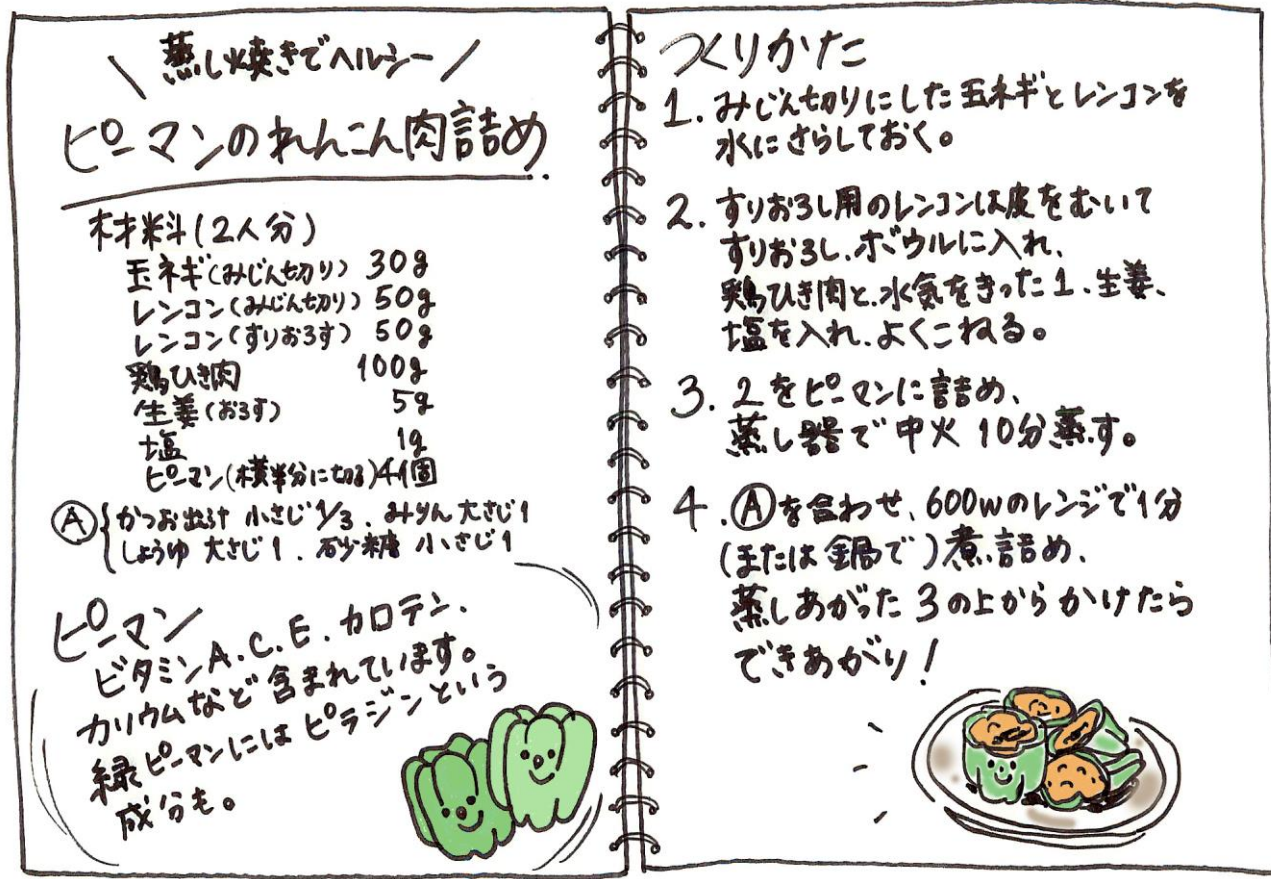 蒸し焼きでヘルシー
ピーマンのれんこん肉詰め
材料(2人分)
玉ネギ(みじん切り) 30g
レンコン(みじん切り) 50g
レンコン(すりおろす) 50g
鶏ひき肉 100g
生姜(おろす) 5g
塩 1g
ピーマン(横半分に切る)4個
Ⓐ かつお出汁 小さじ1/3、みりん 大さじ1
しょうゆ 大さじ1、砂糖 小さじ1
ピーマン
ビタミンA.C.E.カロテン、
カリウムなど含まれています。
緑ピーマンにはピラジンという
成分も。
つくりかた
1.みじん切りにした玉ネギとレンコンを
水にさらしておく。
2.すりおろし用のレンコンは皮をむいて
すりおろし、ボウルに入れ、
鶏ひき肉と、水気をきった1、生姜、
塩を入れ、よくこねる。
3.2をピーマンに詰め、
蒸し器で中火10分蒸す。
4.Ⓐを合わせ、600wのレンジで1分
(または鍋で)煮詰め、
蒸しあがった3の上からかけたら
できあがり!